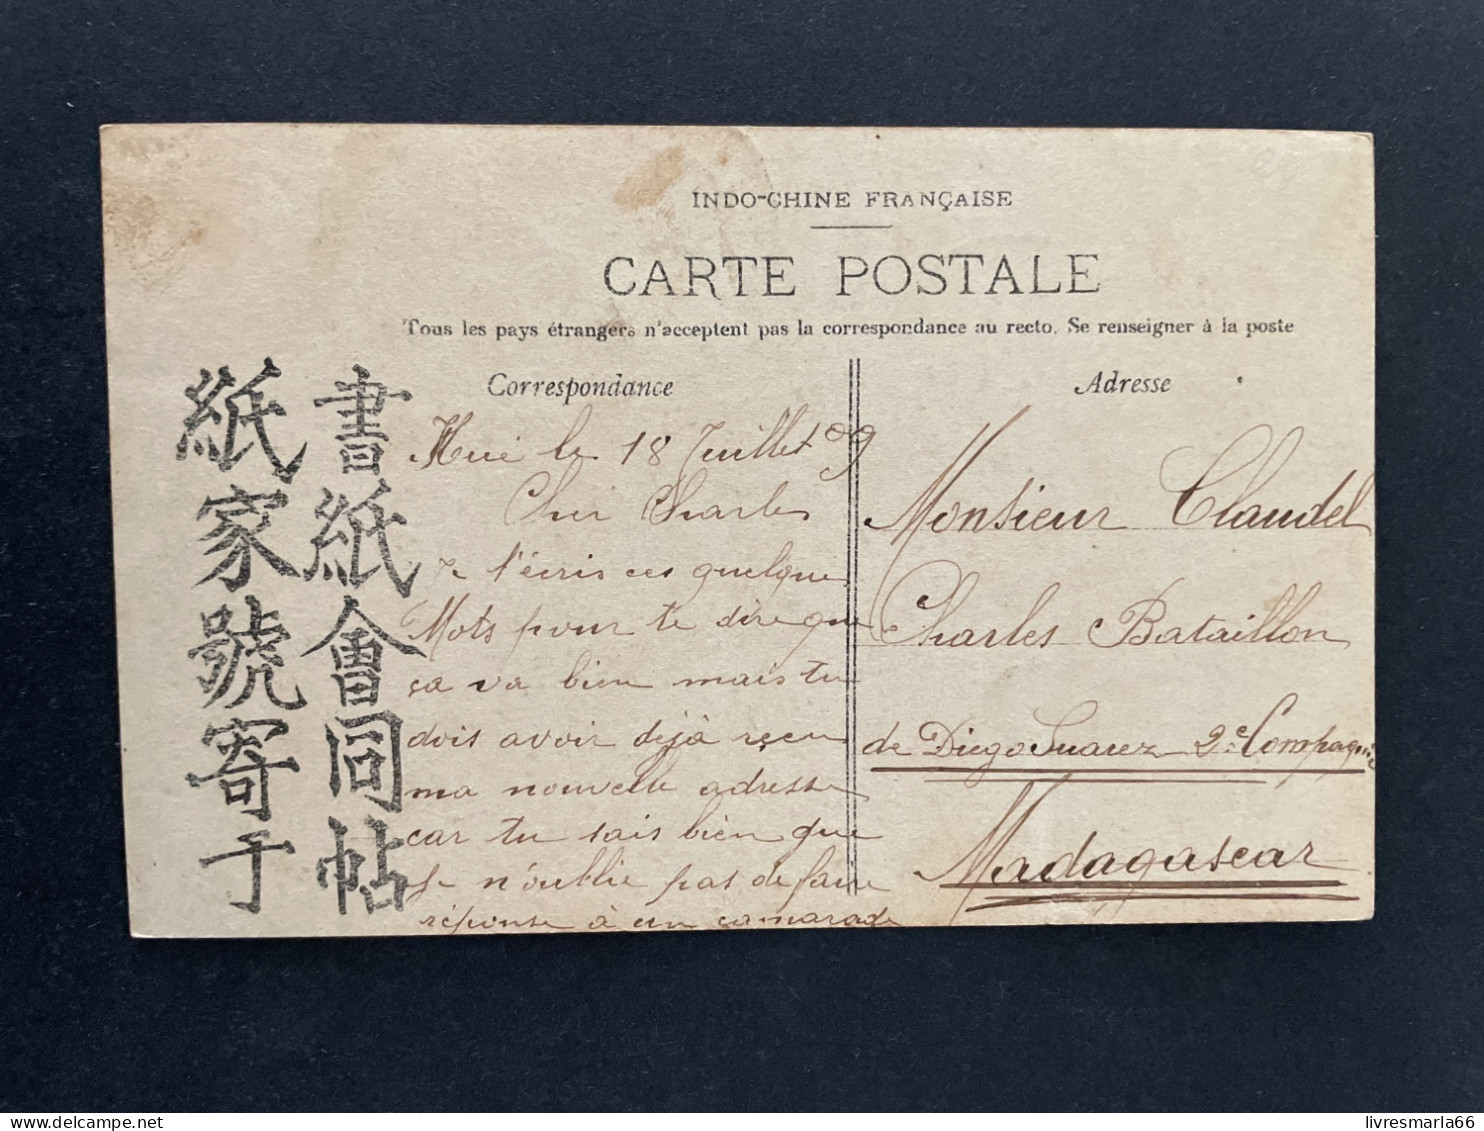 INDO-CHINE FRANÇAISE
CARTE POSTALE
Tous les pays étrangers n'acceptent pas la correspondance au recto. Se renseigner à la poste
書紙會同帖
紙家號寄于
Correspondance
Hué le 18 Juillet 09
Cher Charles
Je t'écris ces quelques
Mots pour te dire que
ça va bien mais tu
dois avoir déjà reçu
ma nouvelle adresse
car tu sais bien que
je n'oublie pas de faire
réponse à un camarade
Adresse
Monsieur Claudel
Charles Bataillon
de Diego Suarez 2e Compagnie
Madagascar
livresmarla66